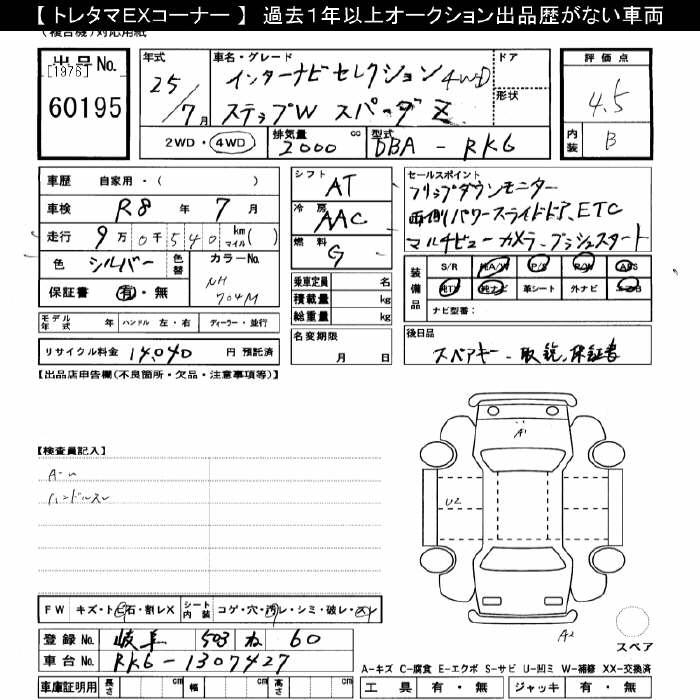 【 トレタマEXコーナー 】 過去1年以上オークション出品歴がない車両
(複合機)対応用紙
出品No.
[1976]
60195
年式
25/7月
車名・グレード
インターナビセレクション4WD
ステップW スパーダ Z
ドア
形状
2WD・4WD
排気量
2000
cc
型式
DBA - RK6
評価点
4.5
内装
B
車歴 自家用・( )
車検 R8 年 7 月
走行 9万0千540 km マイル( )
色 シルバー 色替 カラーNo.
NH
704M
保証書 有・無
モデル年式 年 ハンドル 左・右 ディーラー・並行
リサイクル料金 14,040 円 預託済
シフト
AT
冷房
AAC
燃料
G
乗車定員 名
積載量 kg
総重量 kg
名変期限
月 日
セールスポイント
フリップダウンモニター
両側パワースライドドア、ETC
マルチビューカメラ、プッシュスタート
装備品
S/R 純A/W P/S P/W ABS
純TV 純ナビ 革シート 外ナビ エアB
ナビ型番:
後日品
スペアキー、取説、保証書
【出品店申告欄(不良箇所・欠品・注意事項等)】
【検査員記入】
ハンドルスレ
A1
U2
A2
スペア
FW キズ・ト石・割レX
シート内装 コゲ・穴・汚レ・シミ・破レ・スレ
登録No. 岐阜 503 ね 60
車台No. RK6-1307427
車庫証明用 長さ cm 幅 cm 高さ cm
A-キズ C-腐食 E-エクボ S-サビ U-凹ミ W-補修 XX-交換済
工具 有・無 ジャッキ 有・無